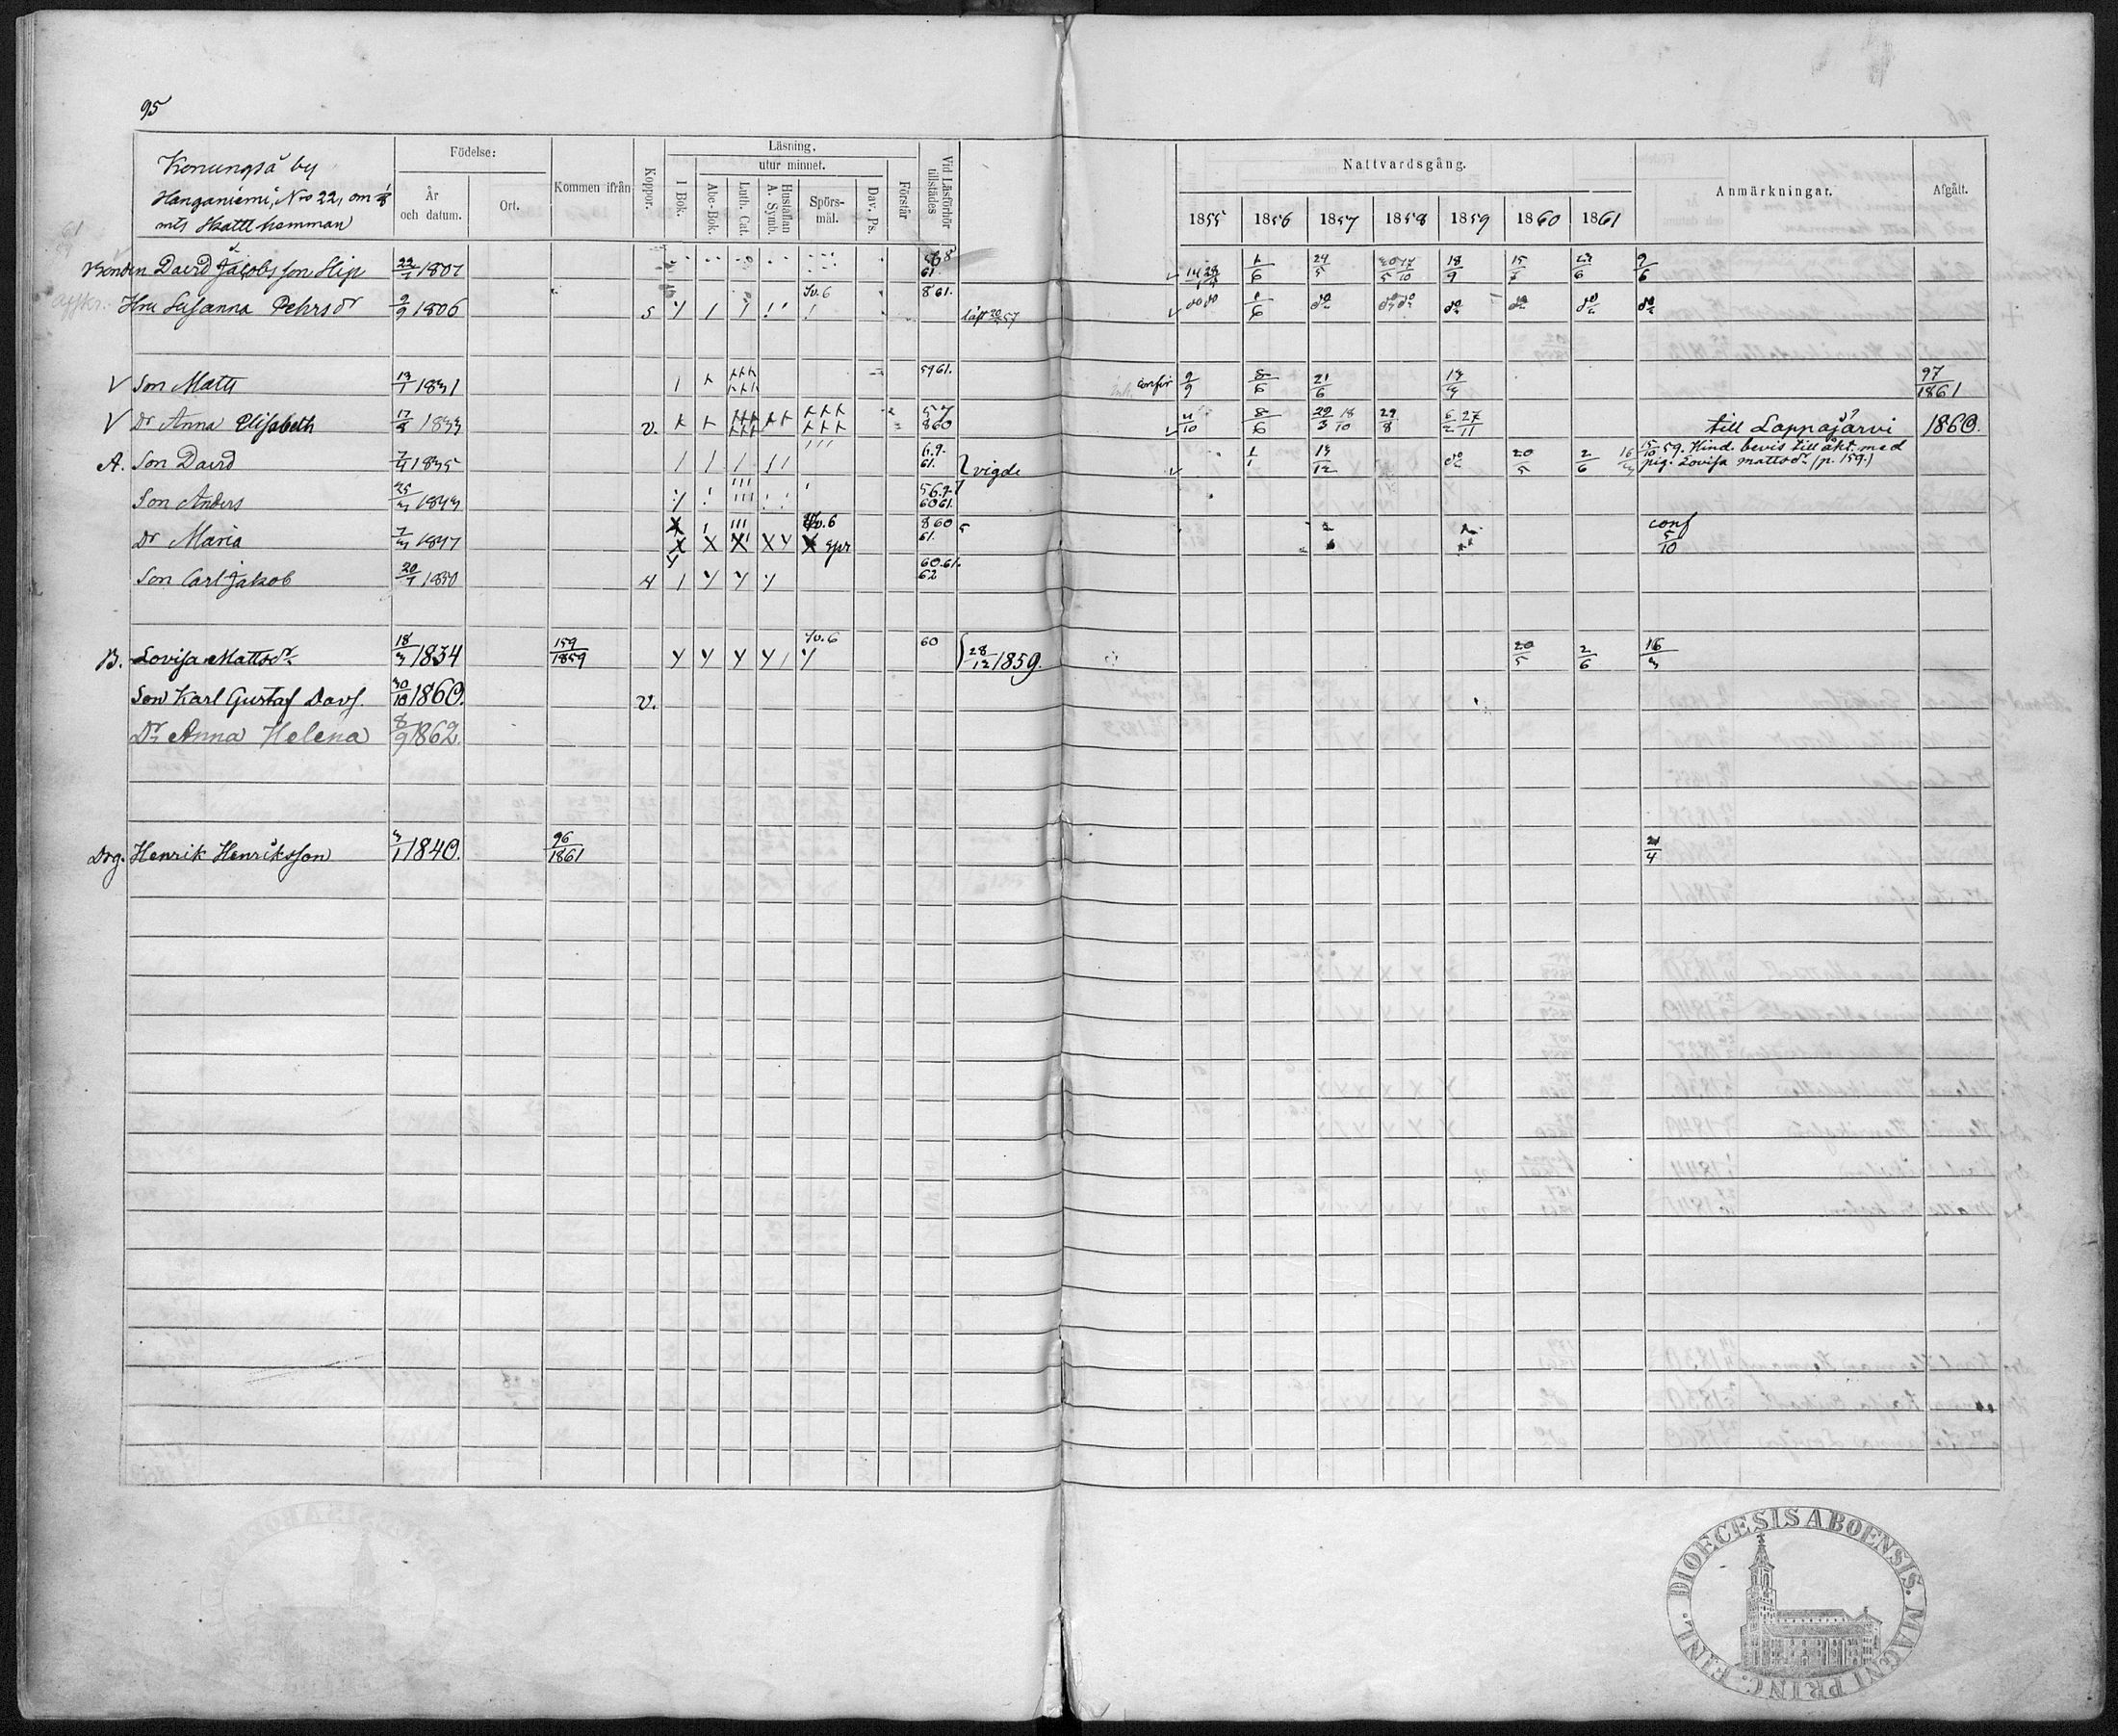 95
Konungså by
Hanganiemi, No 22, om 1/8
mtl Skatte hemman
Födelse:
År och datum.
Ort.
Kommen ifrån
Koppor.
Läsning,
utur minnet.
I Bok.
Abc-Bok.
Luth. Cat.
Hustaflan A. Symb.
Spörs-mål.
Dav. Ps.
Förstår
Vid Läsförhör tillstädes
Nattvardsgång.
1855 1856 1857 1858 1859 1860 1861
Anmärkningar.
Afgått.
Bonden David Jacobsson Slip 22/1 1807 61. 1/6 24/5 18/9 15/7 9/6
Hru Susanna Pehrsdr 9/9 1806 5 Sv. 6 861. 1/6 do do do do do do
Son Matts 13/1 1831 5961. confir 9/9 8/6 21/6 97/1861
V Dr Anna Elisabeth 17/8 1833 v. 57 860 11/10 8/6 29/3 18/10 29/8 6/2 27/11 till Lappajärvi 1860.
A. Son David 7/4 1835 61. vigde 1/1 13/12 do 20/5 2/6 15/10 59. Hind. bevis till äkt. med
pig. Lovisa Mattsdr (p. 159.)
Son Anders 25/3 1843 6061.
Dr Maria 7/3 1847 Sv. 6 860 61. conf 5/10
Son Carl Jakob 20/1 1850 4 60.61. 62
B. Lovisa Mattsdr 18/3 1834 159/1859 Sv. 6 60 28/12 1859. 20/5 2/6 16/3
Son Karl Gustaf Davs. 30/10 1860. v.
Dr Anna Helena 8/9 1862.
Drg. Henrik Henriksson 3/1 1840. 96/1861 21/4
DIOECESIS ABOENSIS. MAGNI PRINC. FINL.